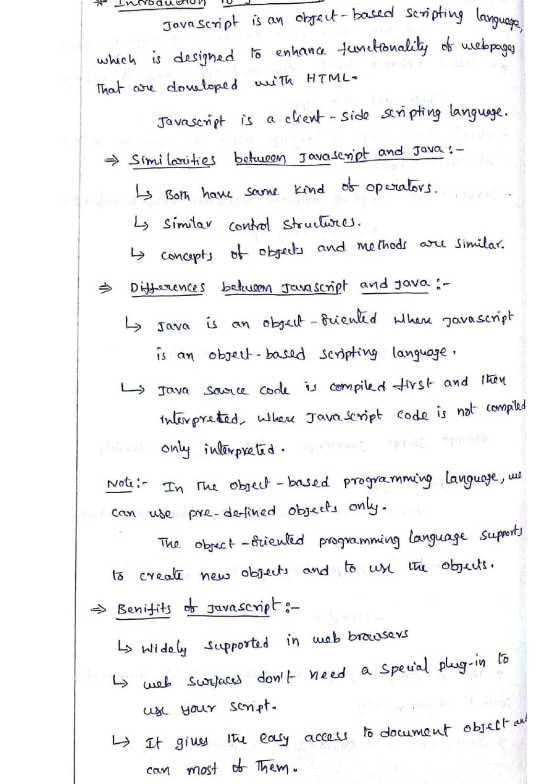 * Introduction to J
Javascript is an object-based scripting language,
which is designed to enhance functionality of webpages
that are doveloped with HTML.
Javascript is a client-side scripting language.
⇒ Similarities between Javascript and Java:-
↳ Both have same kind of operators.
↳ Similar control structures.
↳ concepts of objects and methods are similar.
⇒ Differences between Javascript and Java:-
↳ Java is an object-oriented where Javascript
is an object-based scripting language.
↳ Java source code is compiled first and then
interpreted, where Javascript code is not compiled
only interpreted.
Note:- In the object-based programming language, we
can use pre-defined objects only.
The object-oriented programming language supports
to create new objects and to use the objects.
⇒ Benifits of Javascript:-
↳ widely supported in web browsers
↳ web surfaces don't need a special plug-in to
use your script.
↳ It gives the easy access to document object and
can most of them.